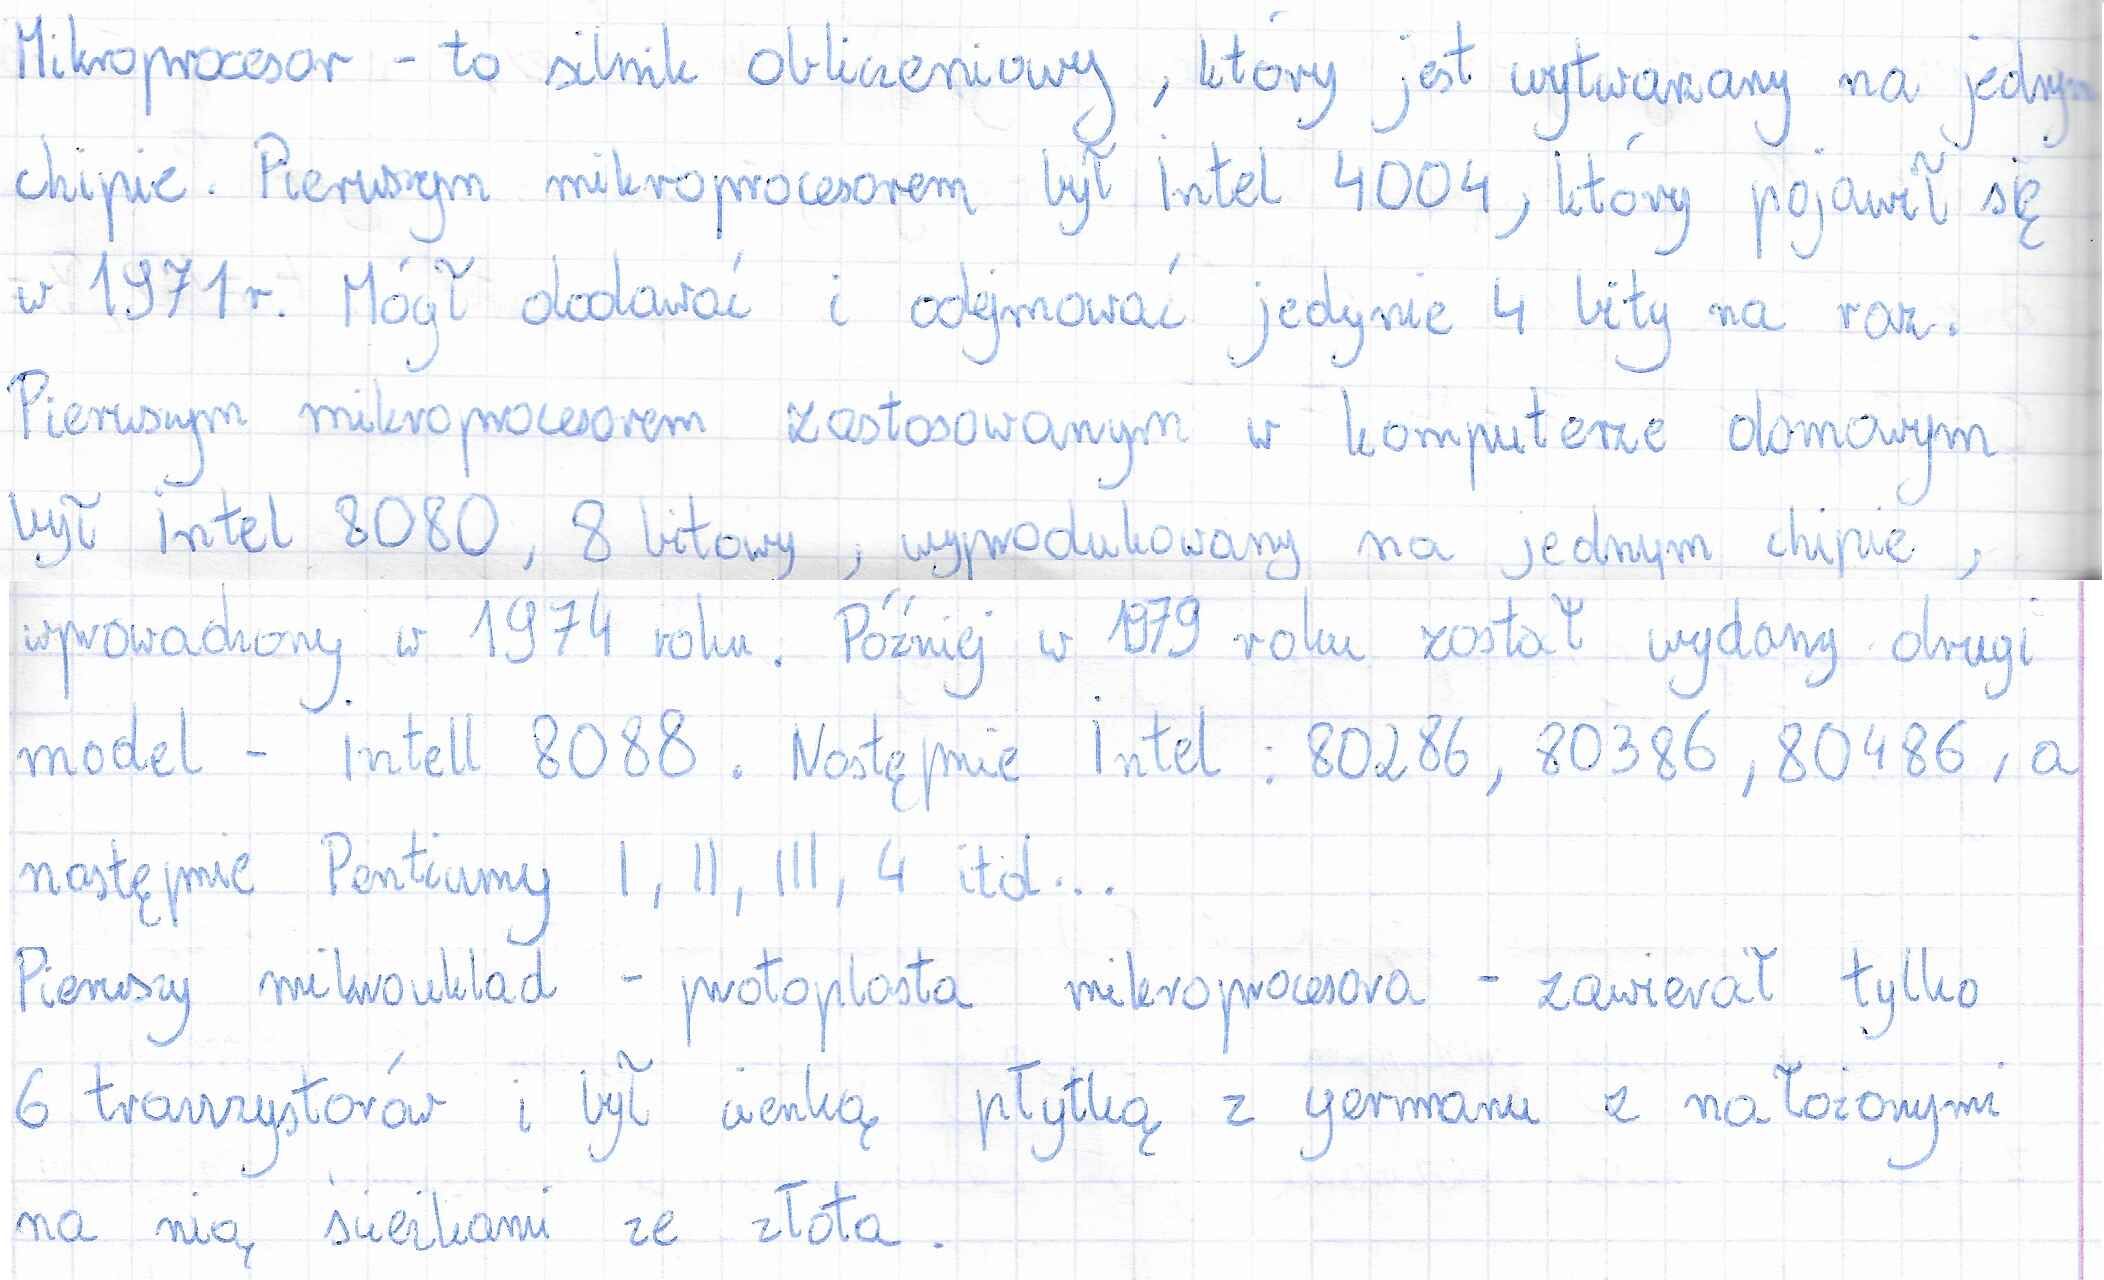 Mikroprocesor - to silnik obliczeniowy, który jest wytwarzany na jednym
chipie. Pierwszym mikroprocesorem był intel 4004, który pojawił się
w 1971r. Mógł dodawać i odejmować jedynie 4 bity na raz.
Pierwszym mikroprocesorem zastosowanym w komputerze domowym
był intel 8080, 8 bitowy, wyprodukowany na jednym chipie,
wprowadzony w 1974 roku. Później w 1979 roku został wydany drugi
model - intell 8088. Następnie intel: 80286, 80386, 80486, a
następnie Pentiumy I, II, III, 4 itd...
Pierwszy mikroukład - protoplasta mikroprocesora - zawierał tylko
6 tranzystorów i był cienką płytką z germanu z nałożonymi
na nią ścieżkami ze złota.